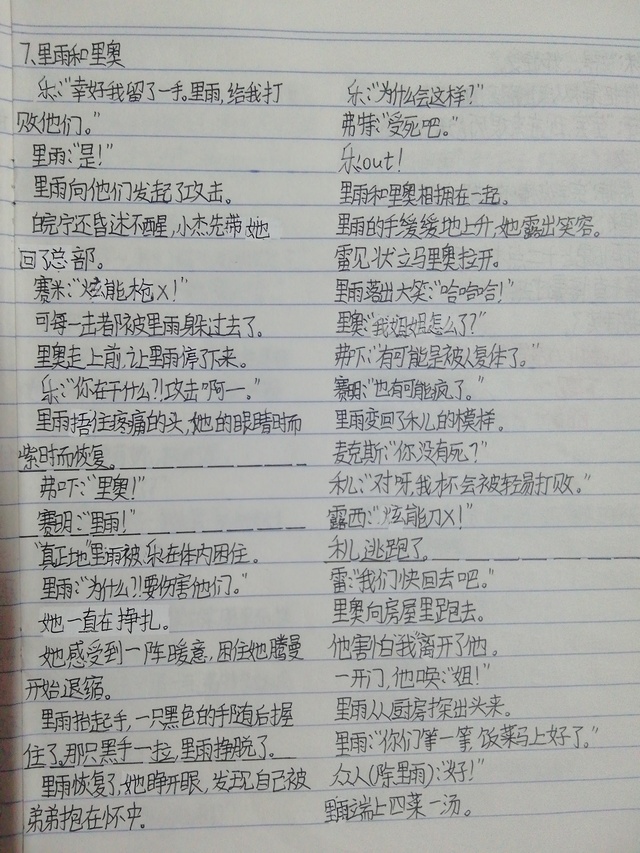 7、里雨和里奥
乐:"幸好我留了一手。里雨,给我打
败他们。"
里雨:"是!"
里雨向他们发起了攻击。
白皖宁还昏迷不醒,小杰先带她
回了总部。
赛米:"炫能枪X!"
可每一击都被里雨躲过去了。
里奥走上前,让里雨停了下来。
乐:"你在干什么?!攻击啊一。"
里雨捂住疼痛的头,她的眼睛时而
紫时而恢复。
弗吓:"里奥!"
赛明:"里雨!"
"真正地"里雨被乐在体内困住。
里雨:"为什么?!要伤害他们。"
她一直在挣扎。
她感受到一阵暖意,困住她腾曼
开始退缩。
里雨抬起手,一只黑色的手随后握
住了。那只黑手一拉,里雨挣脱了。
里雨恢复了,她睁开眼,发现自己被
弟弟抱在怀中。
乐:"为什么会这样?"
弗特:"受死吧。"
乐out!
里雨和里奥相拥在一起。
里雨的手缓缓地上升,她露出笑容。
雷见状立马里奥拉开。
里雨落出大笑:"哈哈哈!"
里奥:"我姐姐怎么了?"
弗吓:"有可能是被人复体了。"
赛明:"也有可能疯了。"
里雨变回了禾儿的模样。
麦克斯:"你没有死?"
禾儿:"对呀,我才不会被轻易打败。"
露西:"炫能刀X!"
禾儿逃跑了。
雷:"我们快回去吧。"
里奥向房屋里跑去。
他害怕我离开了他。
一开门,他唤:"姐!"
里雨从厨房探出头来。
里雨:"你们等一等,饭菜马上好了。"
众人(除里雨):"好!"
里雨端上四菜一汤。